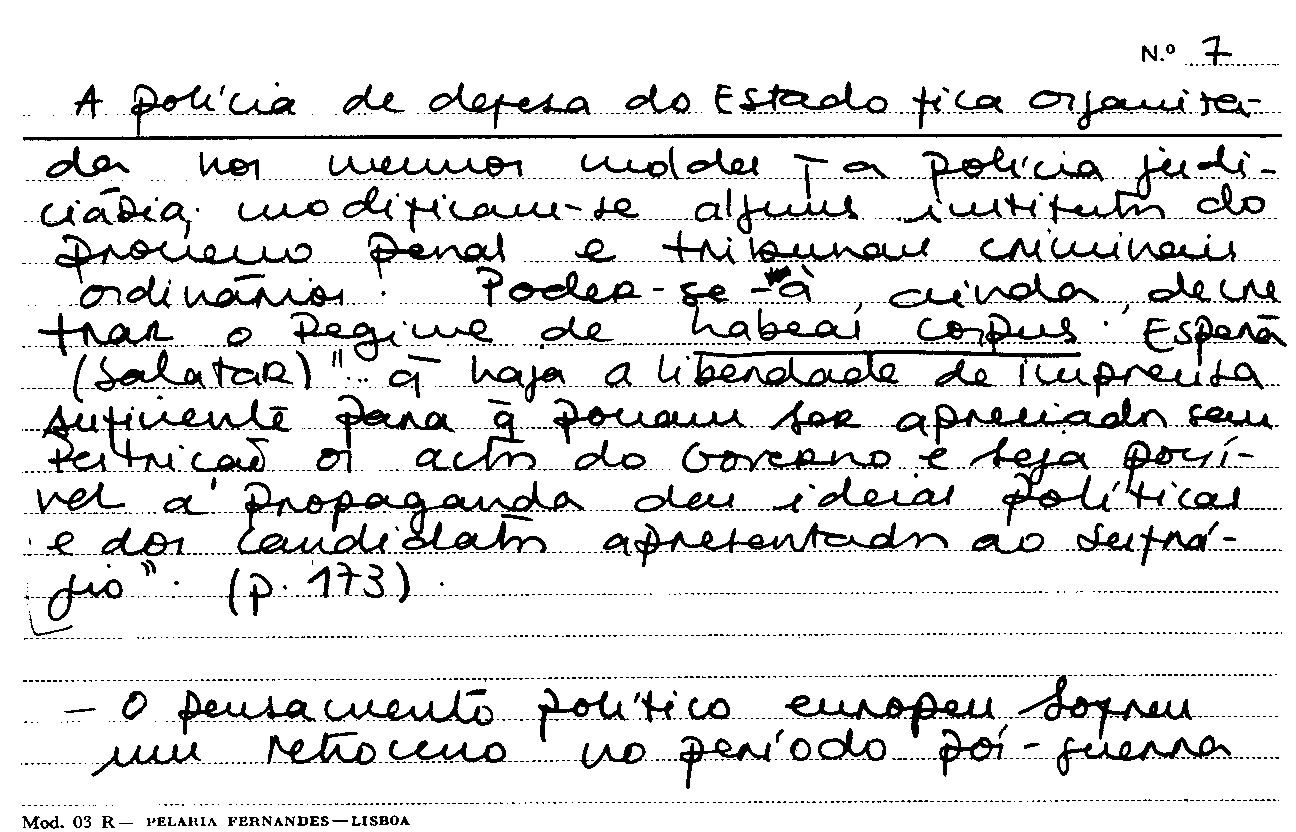 N.º 7
A polícia de defesa do Estado fica organiza-
da nos mesmos moldes q a polícia judi-
ciária, modificam-se alguns institutos do
processo penal e tribunais criminais
ordinários. Poder-se-à, ainda, decre
trar o Regime de habeas corpus. Espera
(Salazar) "... q̄ haja a liberdade de imprensa
suficiente para q̄ possam ser apreciados sem
restrição os actos do Governo e seja possí-
vel a propaganda das ideias políticas
e dos candidatos apresentados ao sufrá-
gio". (p. 173).
— O pensamento político europeu sofreu
um retrocesso no período pós-guerra
Mod. 03 R — PELARIA FERNANDES — LISBOA